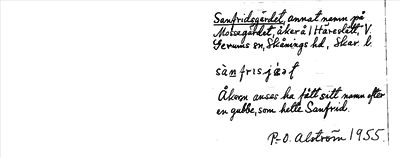 Sanfridsgärdet, annat namn på
Mossegärdet, åker å 1 Häreslätt, V.
Gerums sn, Skånings hd, Skar. l.
sànfrisjæt
Åkern anses ha fått sitt namn efter
en gubbe, som hette Sanfrid.
P-O. Alström 1955.